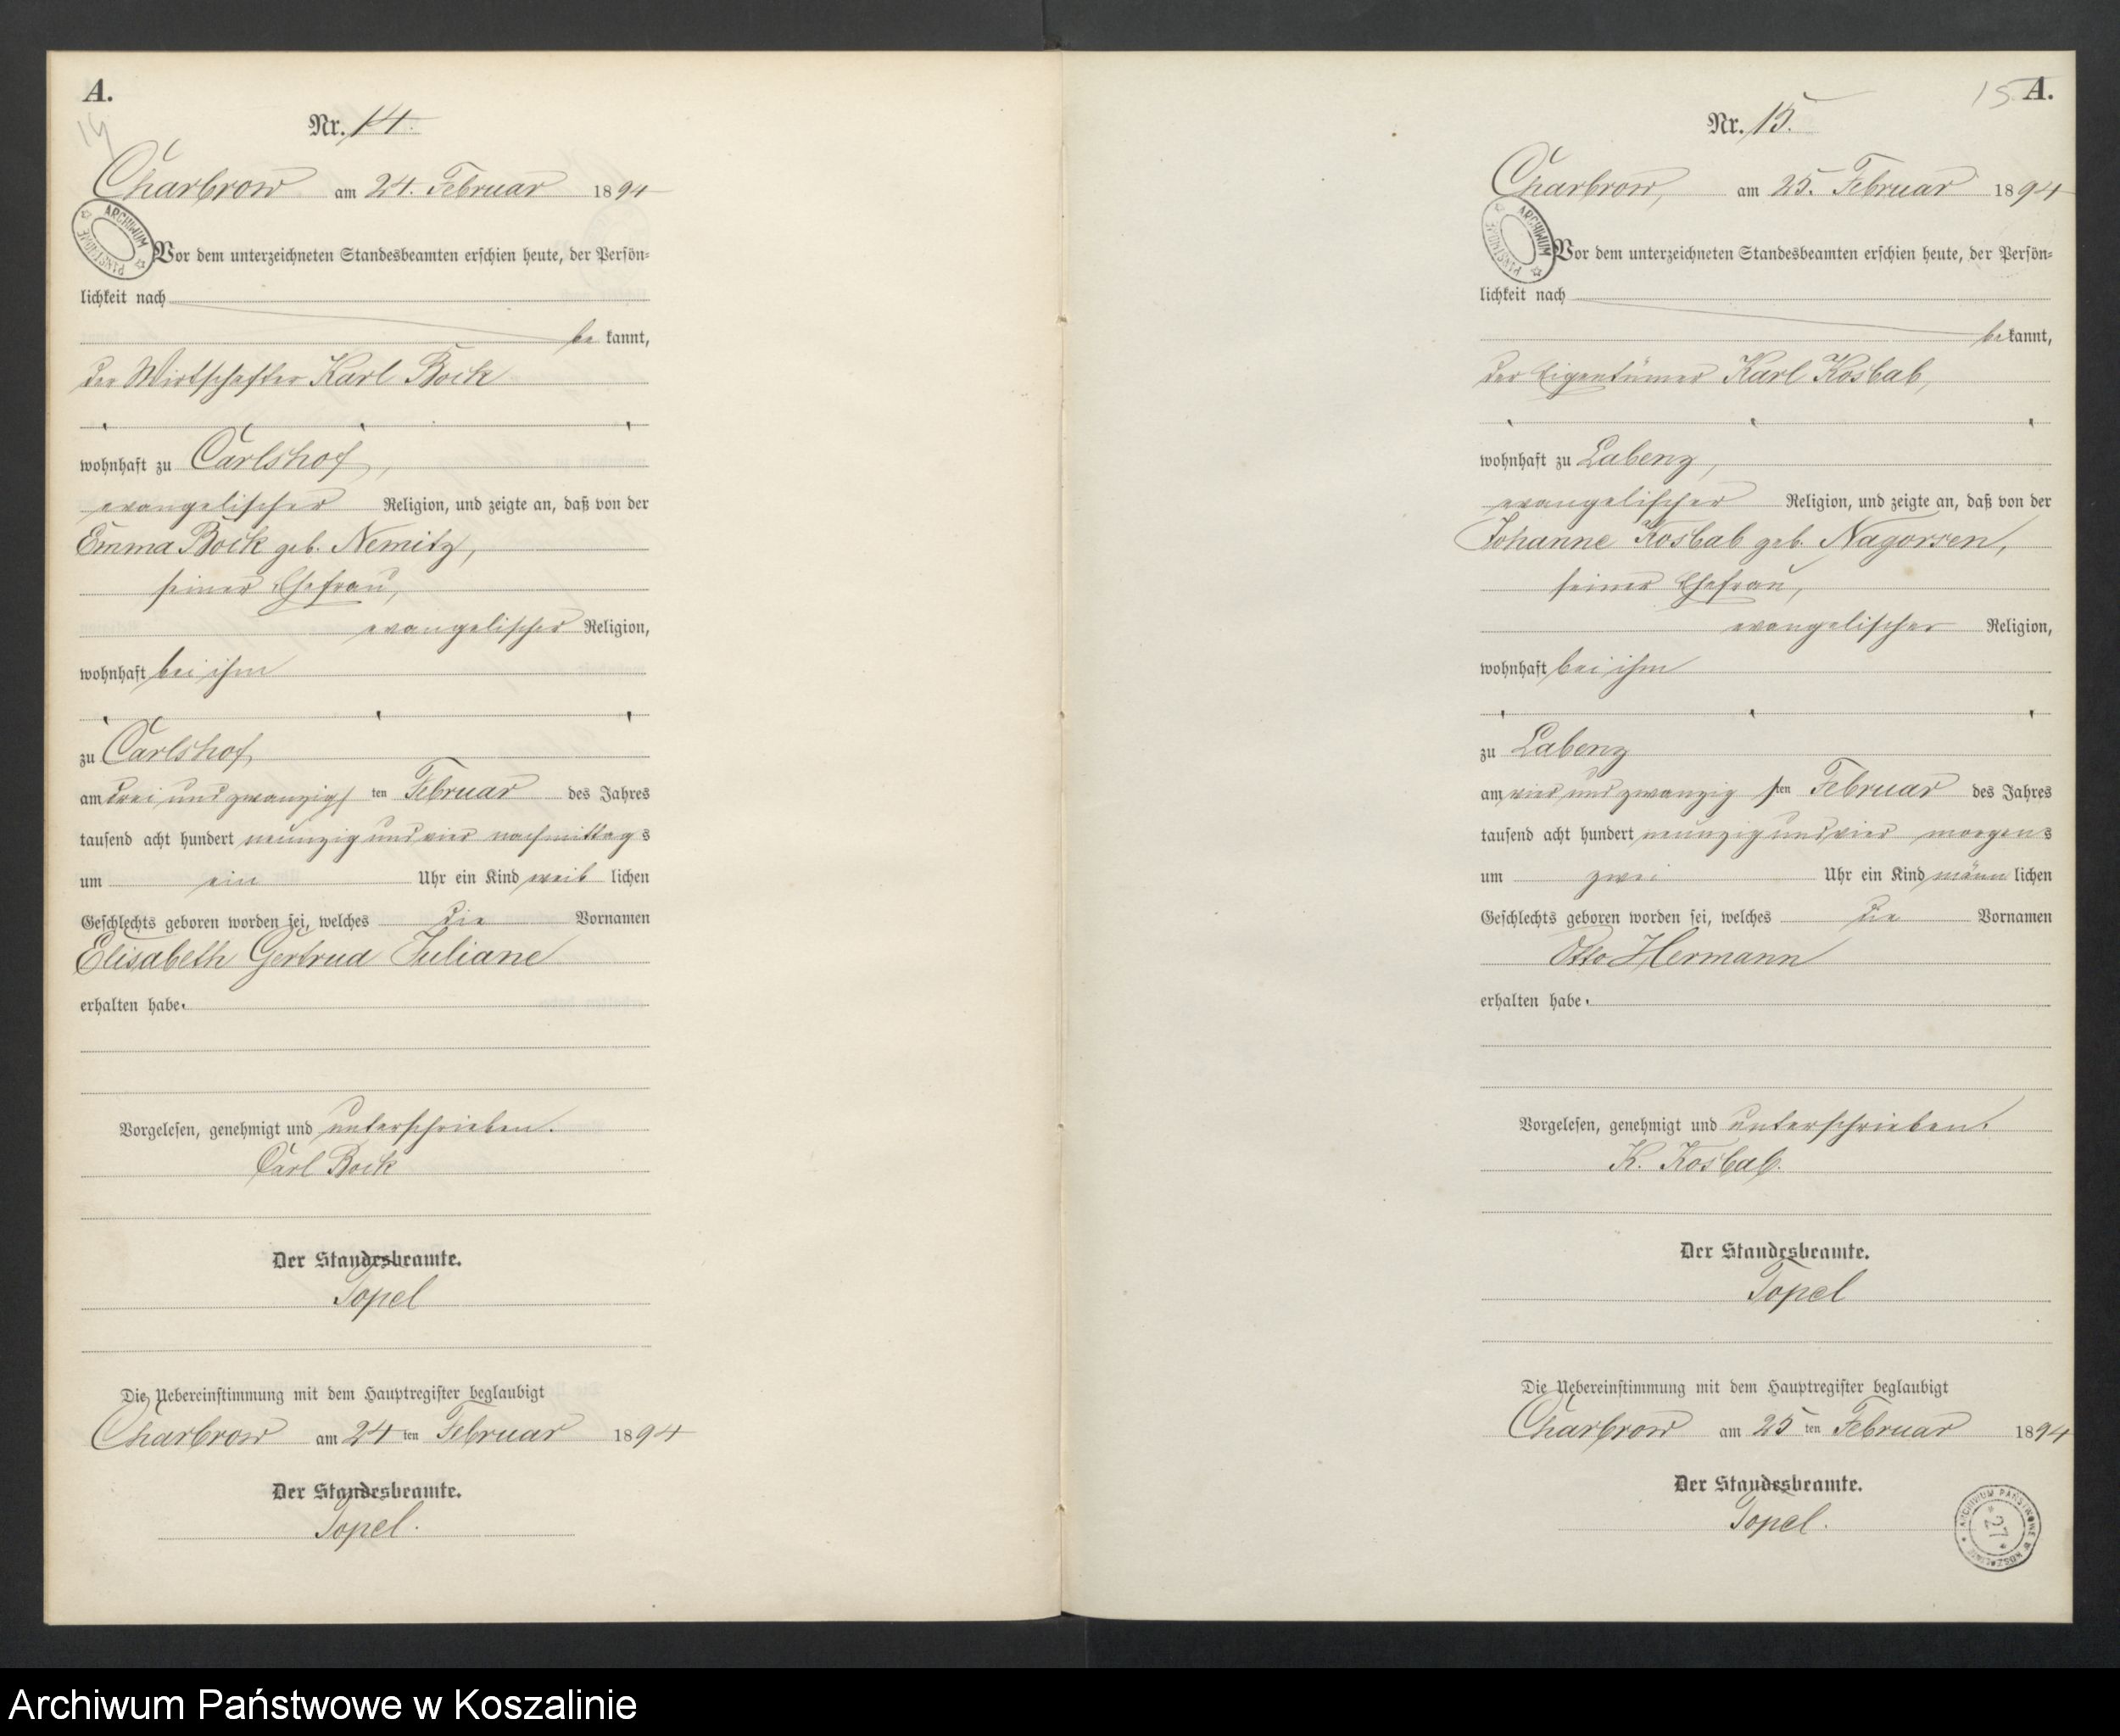 A.
14
Nr. 14.
Charbrow am 24. Februar 1894
ARCHIWUM PAŃSTWOWE
Vor dem unterzeichneten Standesbeamten erschien heute, der Persön=
lichkeit nach
be kannt,
der Wirtschafter Karl Bock
wohnhaft zu Carlshof,
evangelischer Religion, und zeigte an, daß von der
Emma Bock geb. Nemitz,
seiner Ehefrau,
evangelischer Religion,
wohnhaft bei ihm
zu Carlshof
am drei und zwanzigs ten Februar des Jahres
tausend acht hundert neunzig und vier nachmittags
um ein Uhr ein Kind weib lichen
Geschlechts geboren worden sei, welches die Vornamen
Elisabeth Gertrud Juliane
erhalten habe.
Vorgelesen, genehmigt und unterschrieben.
Carl Bock
Der Standesbeamte.
Topel
Die Uebereinstimmung mit dem Hauptregister beglaubigt
Charbrow am 24 ten Februar 1894
Der Standesbeamte.
Topel.
15 A.
Nr. 15.
Charbrow, am 25. Februar 1894
ARCHIWUM PAŃSTWOWE
Vor dem unterzeichneten Standesbeamten erschien heute, der Persön=
lichkeit nach
be kannt,
der Eigentümer Karl Kosbab,
wohnhaft zu Labenz,
evangelischer Religion, und zeigte an, daß von der
Johanne Kosbab geb. Nagorsen,
seiner Ehefrau,
evangelischer Religion,
wohnhaft bei ihm
zu Labenz
am vier und zwanzig sten Februar des Jahres
tausend acht hundert neunzig und vier morgens
um zwei Uhr ein Kind männ lichen
Geschlechts geboren worden sei, welches die Vornamen
Otto Hermann
erhalten habe.
Vorgelesen, genehmigt und unterschrieben.
K. Kosbab.
Der Standesbeamte.
Topel
Die Uebereinstimmung mit dem Hauptregister beglaubigt
Charbrow am 25 ten Februar 1894
Der Standesbeamte.
Topel.
ARCHIWUM PAŃSTWOWE W KOSZALINIE
27
Archiwum Państwowe w Koszalinie